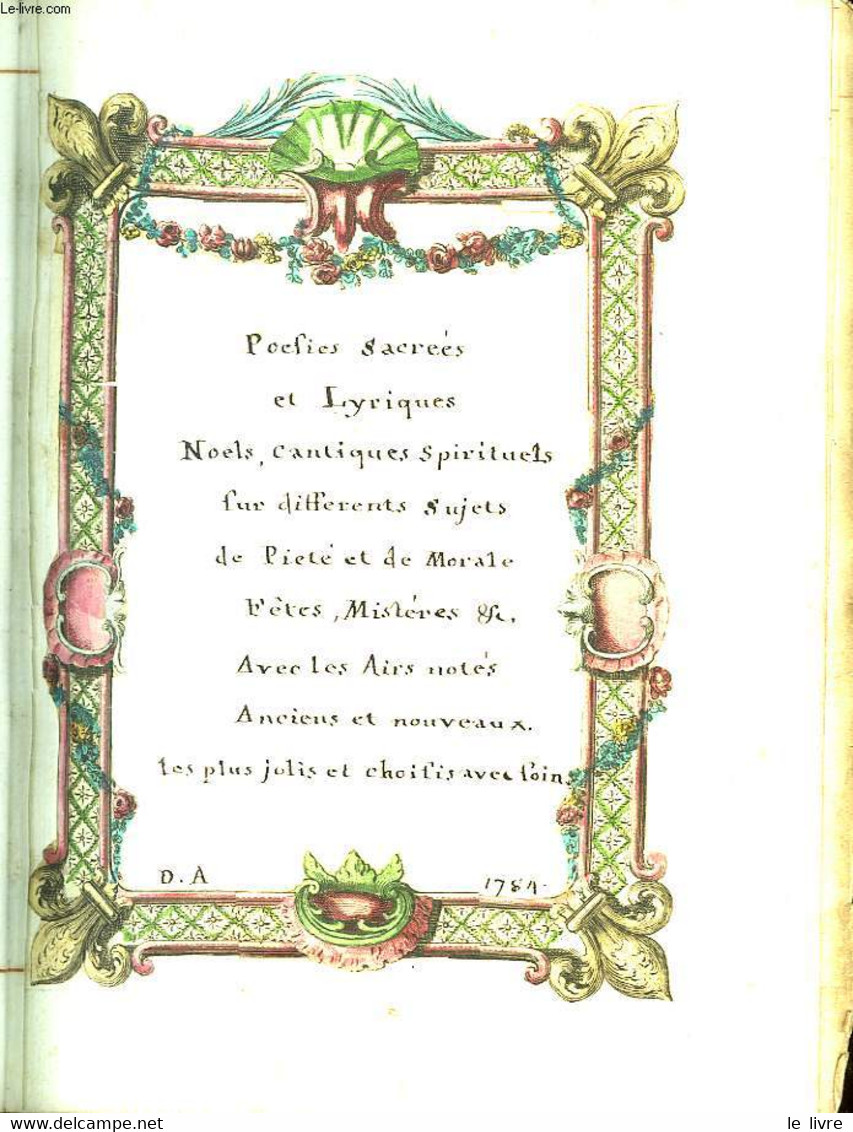 Le-livre.com
Poesies Sacreés
et Lyriques
Noels, Cantiques Spirituels
sur differents Sujets
de Pieté et de Morale
Fêtes, Mistéres &c,
Avec les Airs notés
Anciens et nouveaux.
les plus jolis et choisis avec soin.
D. A 1784.
le livre